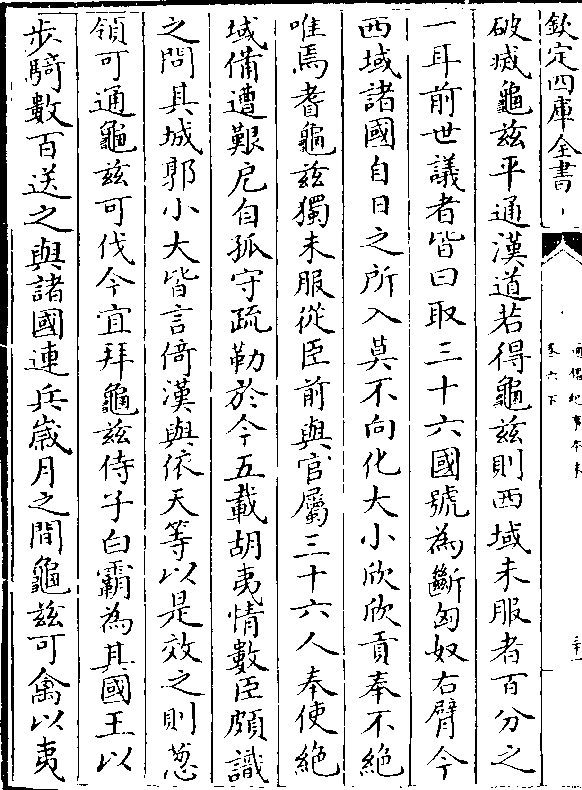 欽定四庫全書
卷六下
破滅龜茲平通漢道若得龜茲則西域未服者百分之
一耳前世議者皆曰取三十六國號為斷匈奴右臂今
西域諸國自日之所入莫不向化大小欣欣貢奉不絶
唯焉耆龜茲獨未服從臣前與官屬三十六人奉使絶
域備遭艱厄自孤守疏勒於今五載胡夷情數臣頗識
之問其城郭小大皆言倚漢與依天等以是效之則葱
領可通龜茲可伐今宜拜龜茲侍子白霸為其國王以
步騎數百送之與諸國連兵歲月之間龜茲可禽以夷